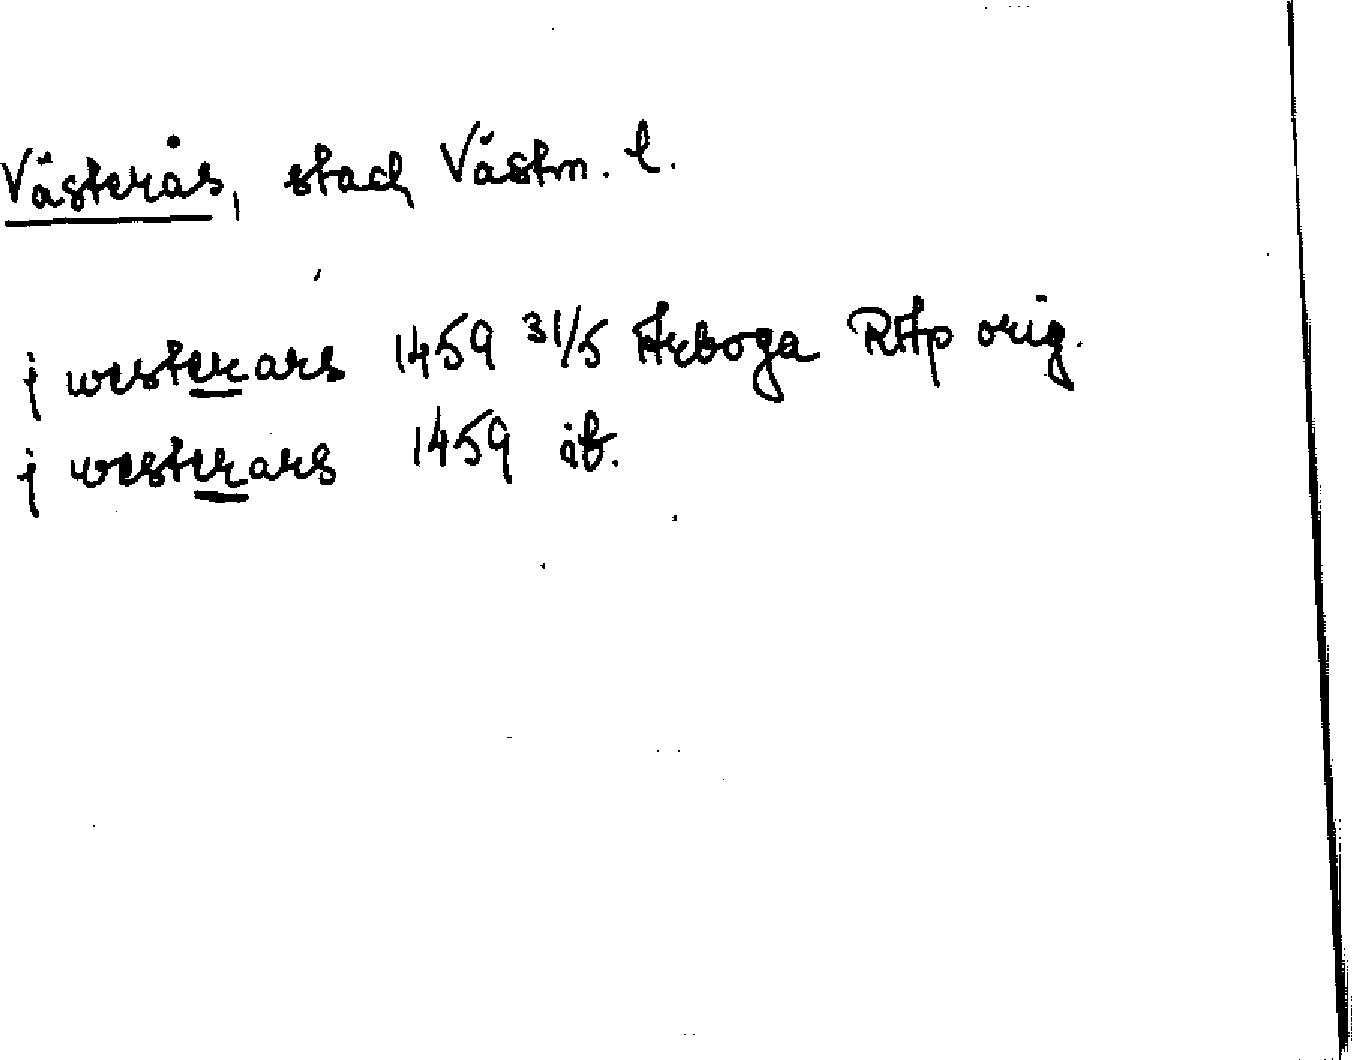 Västerås, stad Västm. l.
j westerars 1459 31/5 Arboga RAp orig.
j westerars 1459 ib.